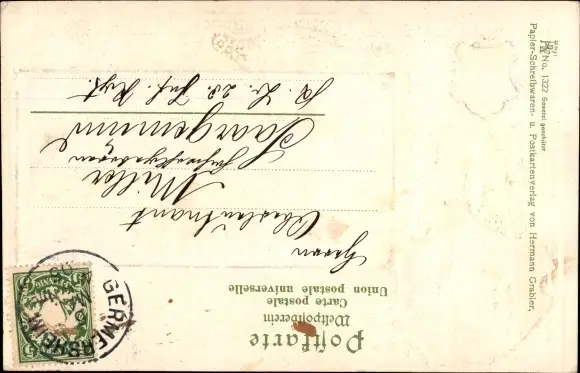 Postkarte
Weltpostverein
Carte postale
Union postale universelle
Herrn
Oberleutnant
Miller
Saargemünd
K. b. 23. Inf. Regt.
GERMERSHEIM
No. 1322 Gesetzl geschützt
Papier-Schreibwaren- u. Postkartenverlag von Hermann Grabler,